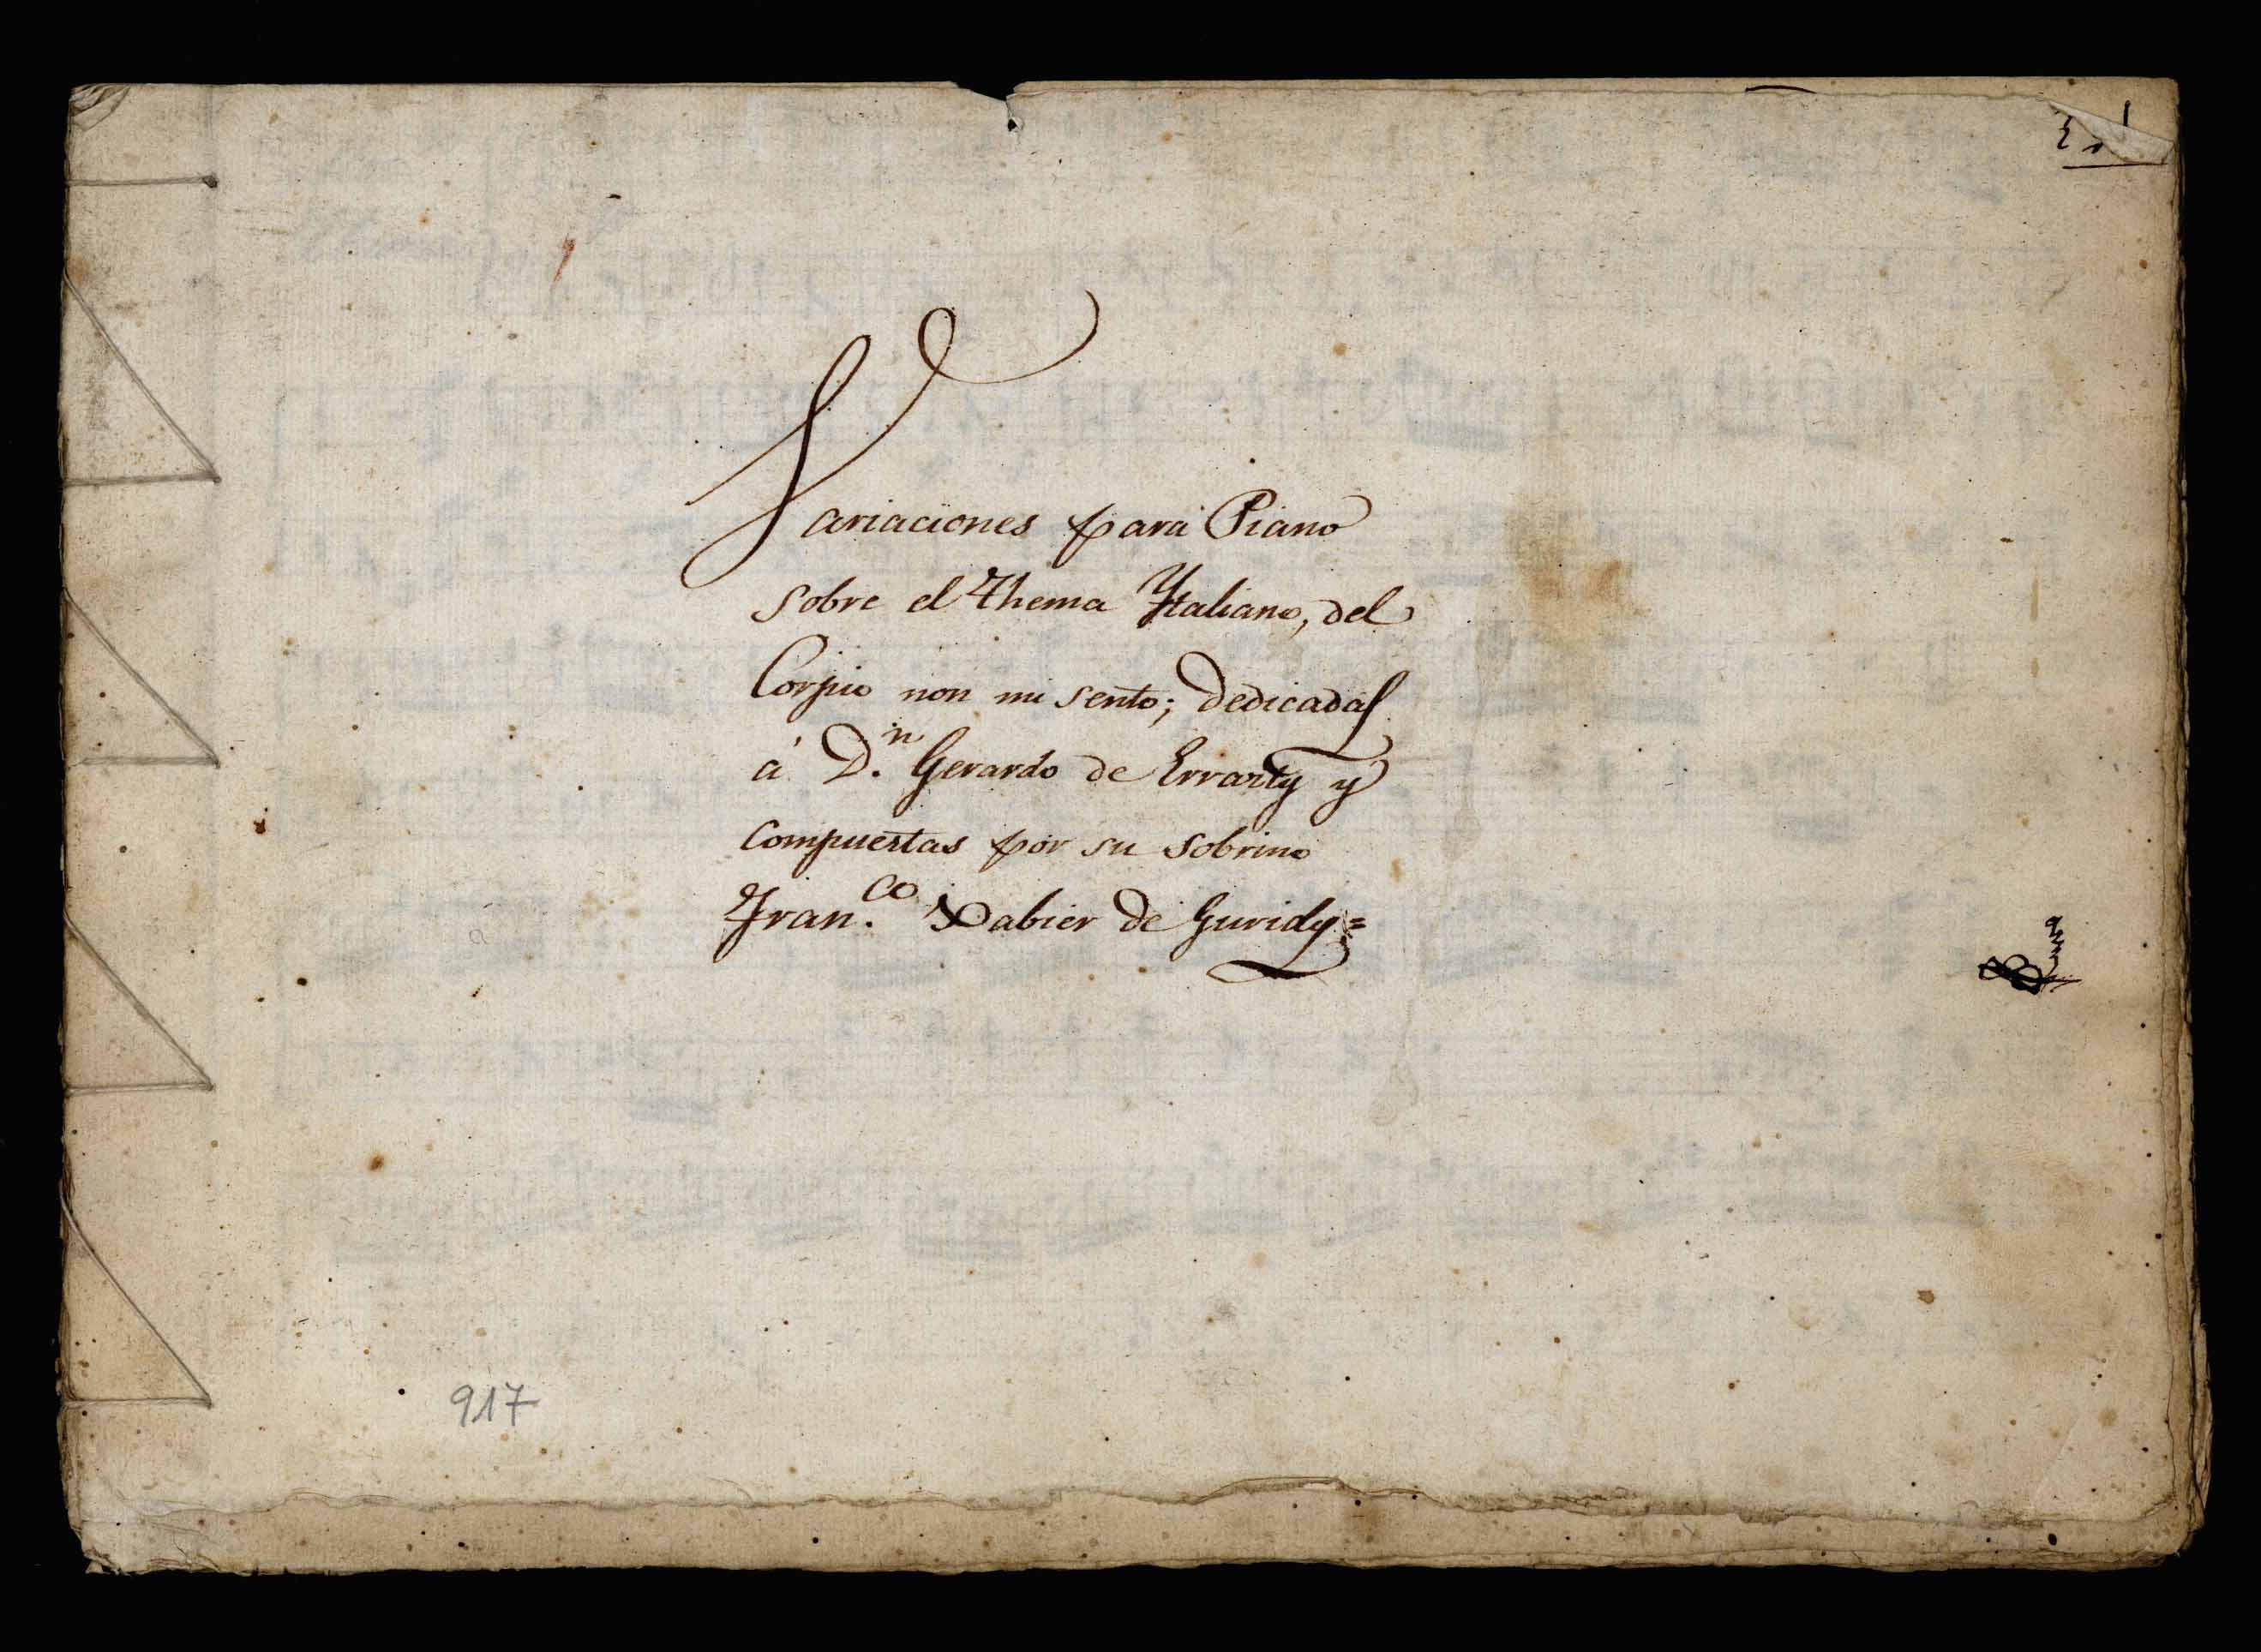 Variaciones para Piano
sobre el Thema Ytaliano, del
Corpio non mi sento; dedicadas
á D.n Gerardo de Errazty y
compuestas por su sobrino
Fran.co Xabier de Guridy=
917